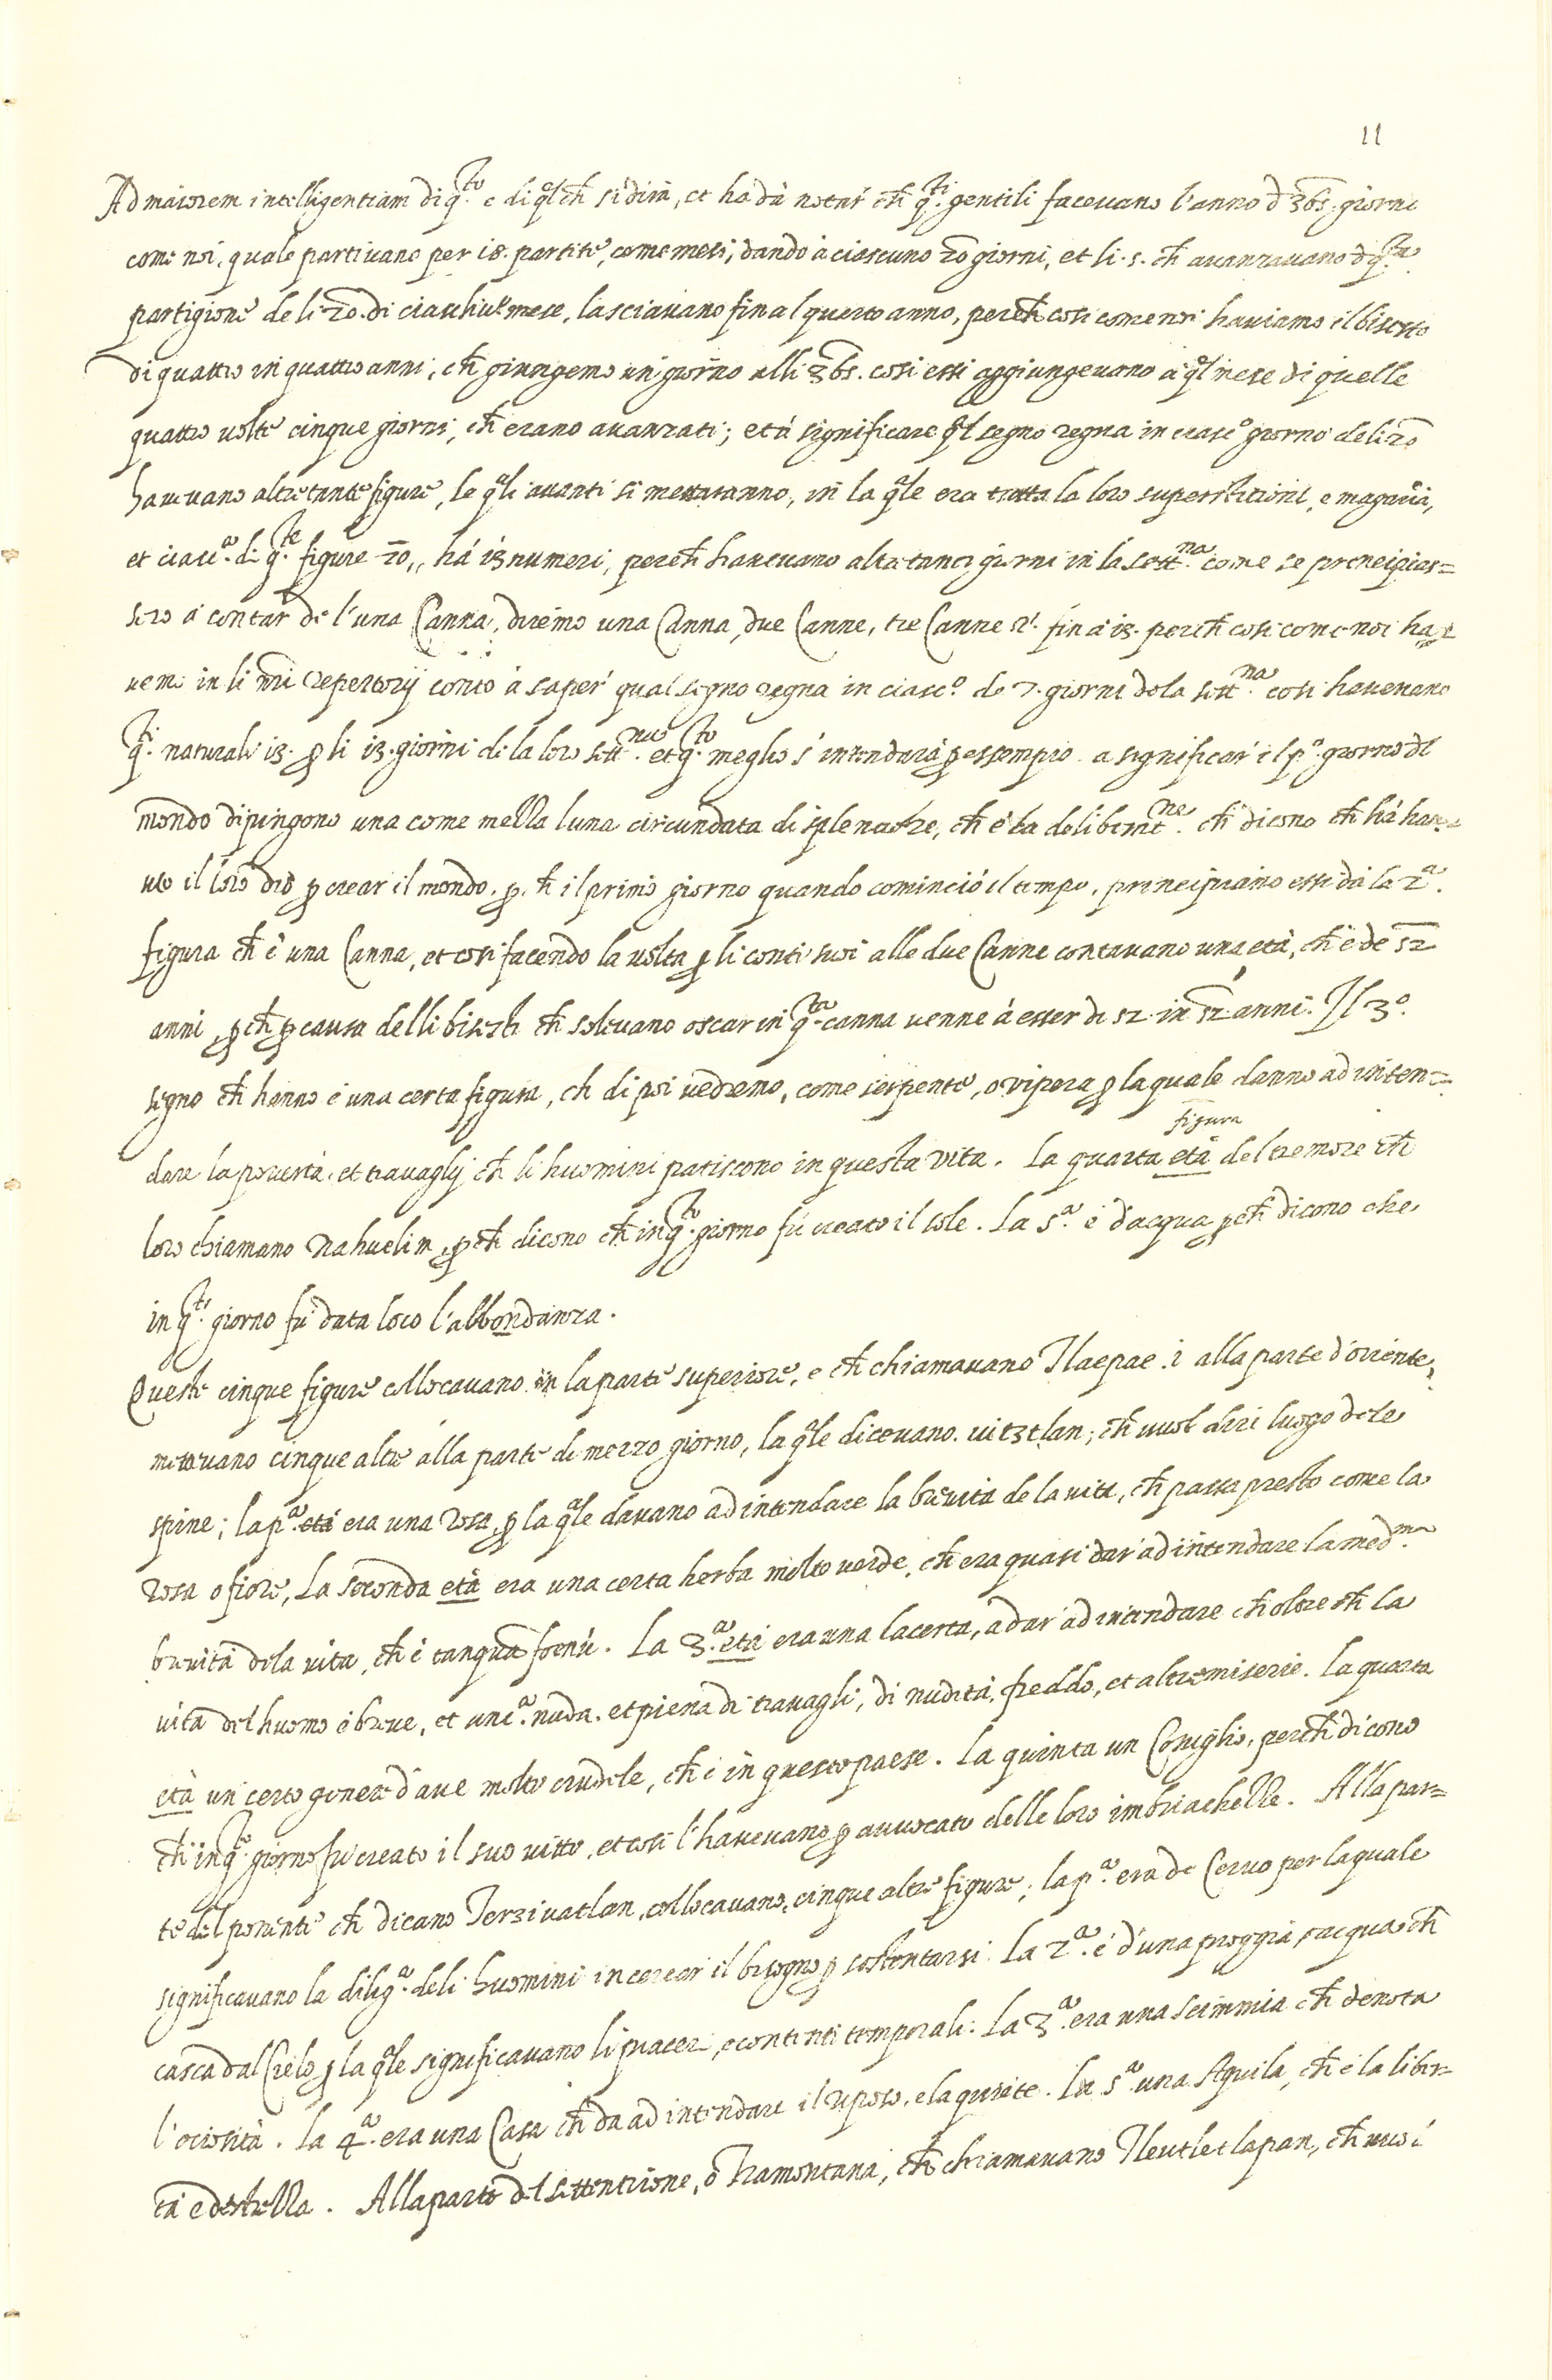 11
Ad maiorem intelligentiam di q.to e di ql ch̄ si dirà, et ha dà notar ch̄ q.ti gentili facevano l'anno d 365. giorni
come noi, quale partivano per 18. partite, come mesi, dando à ciascuno 20 giorni, et li .5. ch̄ avanzavano d q.ta
partigione de li 20. di ciaschun mese, lasciavano fin al quarto anno, perch̄ cosi come noi haviamo il bisesto
di quattro in quattro anni, ch̄ giungemo un giorno alli 365. cosi essi aggiungevano à ql mese di quelle
quattro volte cinque giorni, ch̄ erano avanzati; et à significare ql segno regna in ciasc.o giorno de li 20
havevano altretante figure, le qli avanti si metteranno, in la qle era tutta la loro superstitione, e magaria,
et ciasc.a di q.te figure 20,, há 13 numeri, perch̄ havevano altretanti giorni in la sett.na come se prencipias=
sero à contar de l'una Canna, diremo una Canna, due Canne, tre Canne fin à 13. perch̄ cosi come noi ha
vemo in li nr̄i repertorij conto à saper qual segno regna in ciasc.o de 7. giorni dela sett.na cosi havevano
q.ti naturali 13. p li 13. giorni de la loro sett.na et q.to meglio s'intenderà p essempio. a significar il p.o giorno dl
mondo dipingono una come mella luna circundata di splendore, ch̄ è la deliberat.ne ch̄ dicono ch̄ há hav
uto il loro dio p crear il mondo. p. ch̄ il primo giorno quando cominciò il tempo, principiano essi dà la 2.a
figura ch̄ è una Canna, et cosi facendo la volta p li conti suoi alle due Canne contavano una età, ch̄ è de 52
anni, p ch̄ p causa delli bisesti ch̄ solevano in q.ta canna venne à esser di 52 in 52 anni. Il 3.o
segno ch̄ hanno è una certa figura, ch di poi vedremo, come serpente, o vipera p la quale danno ad inten=
figura
dere la povertà, et travaglij ch̄ li huomini patiscono in questa vita. La quarta età del tremore ch̄
loro chiamano Nahuelin, p ch̄ dicono ch̄ in q.to giorno fú creato il sole. La 5.a è d'acqua p ch̄ dicono che
in q.to giorno fú data loro l'abbondanza.
Queste cinque figure collocavano in la parte superiore, e ch̄ chiamavano Tlaepae. i alla parte d'oriente,
mettevano cinque altre alla parte di mezzo giorno, la qle dicevano. vitztlan; ch̄ vuol dire luogo de le
spine; la p.a età era una rosa, p la qle davano ad intendere la brevità de la vita, ch̄ passa presto come la
rosa o fiore, La seconda età era una certa herba molto verde, ch̄ era quasi dar ad intendere la med.ma
brevità dela vita, ch̄ è tanquā foenū. La 3.a età era una lacerta, à dar ad intendere ch̄ oltre ch̄ la
vita del huomo è breve, et anc.a nuda. et piena di travagli, di nudità, freddo, et altre miserie. La quarta
età un certo genere d'ave molto crudele, ch̄ è in questo paese. La quinta un Coniglio, perch̄ dicono
ch̄ in q.to giorno fú creato il suo vitto, et cosi l'havevano p avvocato delle loro imbriachezze. Alla par=
te del ponente ch̄ dicano Tetziuatlan, collocavano, cinque altre figure; la p.a era de Cervo per la quale
significavano la dilig.a deli huomini in cercar il bisogno p sostentarsi. La 2.a è d'una pioggia, e acqua ch̄
casca dal Cielo, p la qle significavano li piaceri, e contenti temporali: La 3.a era una scimmia ch̄ denota
l'ociosità. la 4.a era una Casa ch̄ dà ad intendere il riposo, e la quiete. La 5.a una Aquila, ch̄ è la liber=
tà e destrezza. Alla parte del settentrione, ò Tramontana, ch̄ chiamavano Teutletlapan, ch̄ vuol